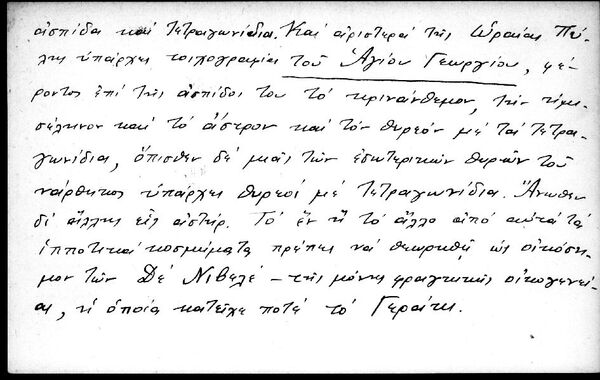 ἀσπίδα καί τετραγωνίδια. Καί ἀριστερά τῆς Ὡραίας Πύ-
λης ὑπάρχει τοιχογραφία τοῦ Ἁγίου Γεωργίου, φέ-
ροντος ἐπί τῆς ἀσπίδος του τό κρινάνθεμον, τήν ἡμι-
σέληνον καί τό ἄστρον καί τόν θυρεόν μέ τά τετρα-
γωνίδια, ὄπισθεν δέ μιᾶς τῶν ἐσωτερικῶν θυρῶν τοῦ
νάρθηκος ὑπάρχει θυρεοί μέ τετραγωνίδια. Ἄνωθεν
δέ ἄλλης εἷς ἀστήρ. Τό ἕν ἤ τό ἄλλο ἀπό αὐτά τά
ἱπποτικά κοσμήματα πρέπει νά θεωρηθῇ ὡς οἰκόση-
μον τῶν Δέ Νιβελέ - τῆς μόνης φραγκικῆς οἰκογενεί-
ας, ἡ ὁποία κατεῖχε ποτέ τό Γεράκι.